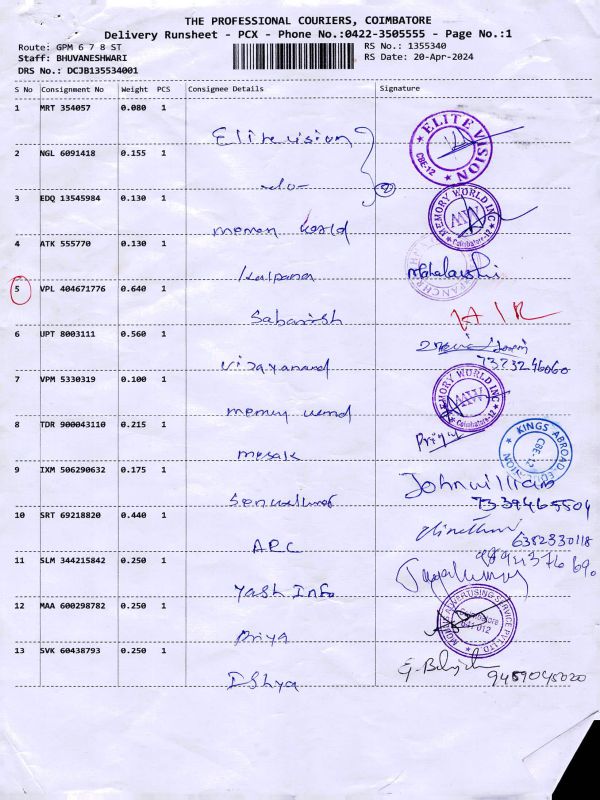 THE PROFESSIONAL COURIERS, COIMBATORE
Delivery Runsheet - PCX - Phone No.:0422-3505555 - Page No.:1
Route: GPM 6 7 8 ST
RS No.: 1355340
Staff: BHUVANESHWARI
RS Date: 20-Apr-2024
DRS No.: DCJB135534001
S No Consignment No Weight PCS Consignee Details Signature
1 MRT 354057 0.080 1
Elite vision
ELITE VISION CBE-12
2 NGL 6091418 0.155 1
-do-
(2)
3 EDQ 13545984 0.130 1
memory world
MEMORY WORLD INC Coimbatore-12 MW
4 ATK 555770 0.130 1
Kalpana
Mahalakshmi
5 VPL 404671776 0.640 1
Sabarish
6 UPT 8003111 0.560 1
Vijayanand
7373246060
7 VPM 5330319 0.100 1
memory world
MEMORY WORLD INC Coimbatore-12 MW
8 TDR 900043110 0.215 1
Priya
KINGS ABROAD EDUCATION CBE-12
9 IXM 506290632 0.175 1
John william
7339465504
10 SRT 69218820 0.440 1
ARC
6382330118
11 SLM 344215842 0.250 1
Yash Info
12 MAA 600298782 0.250 1
Priya
ADVERTISING SERVICE PVT LTD Coimbatore 641 012
13 SVK 60438793 0.250 1
Dshya
9489045020